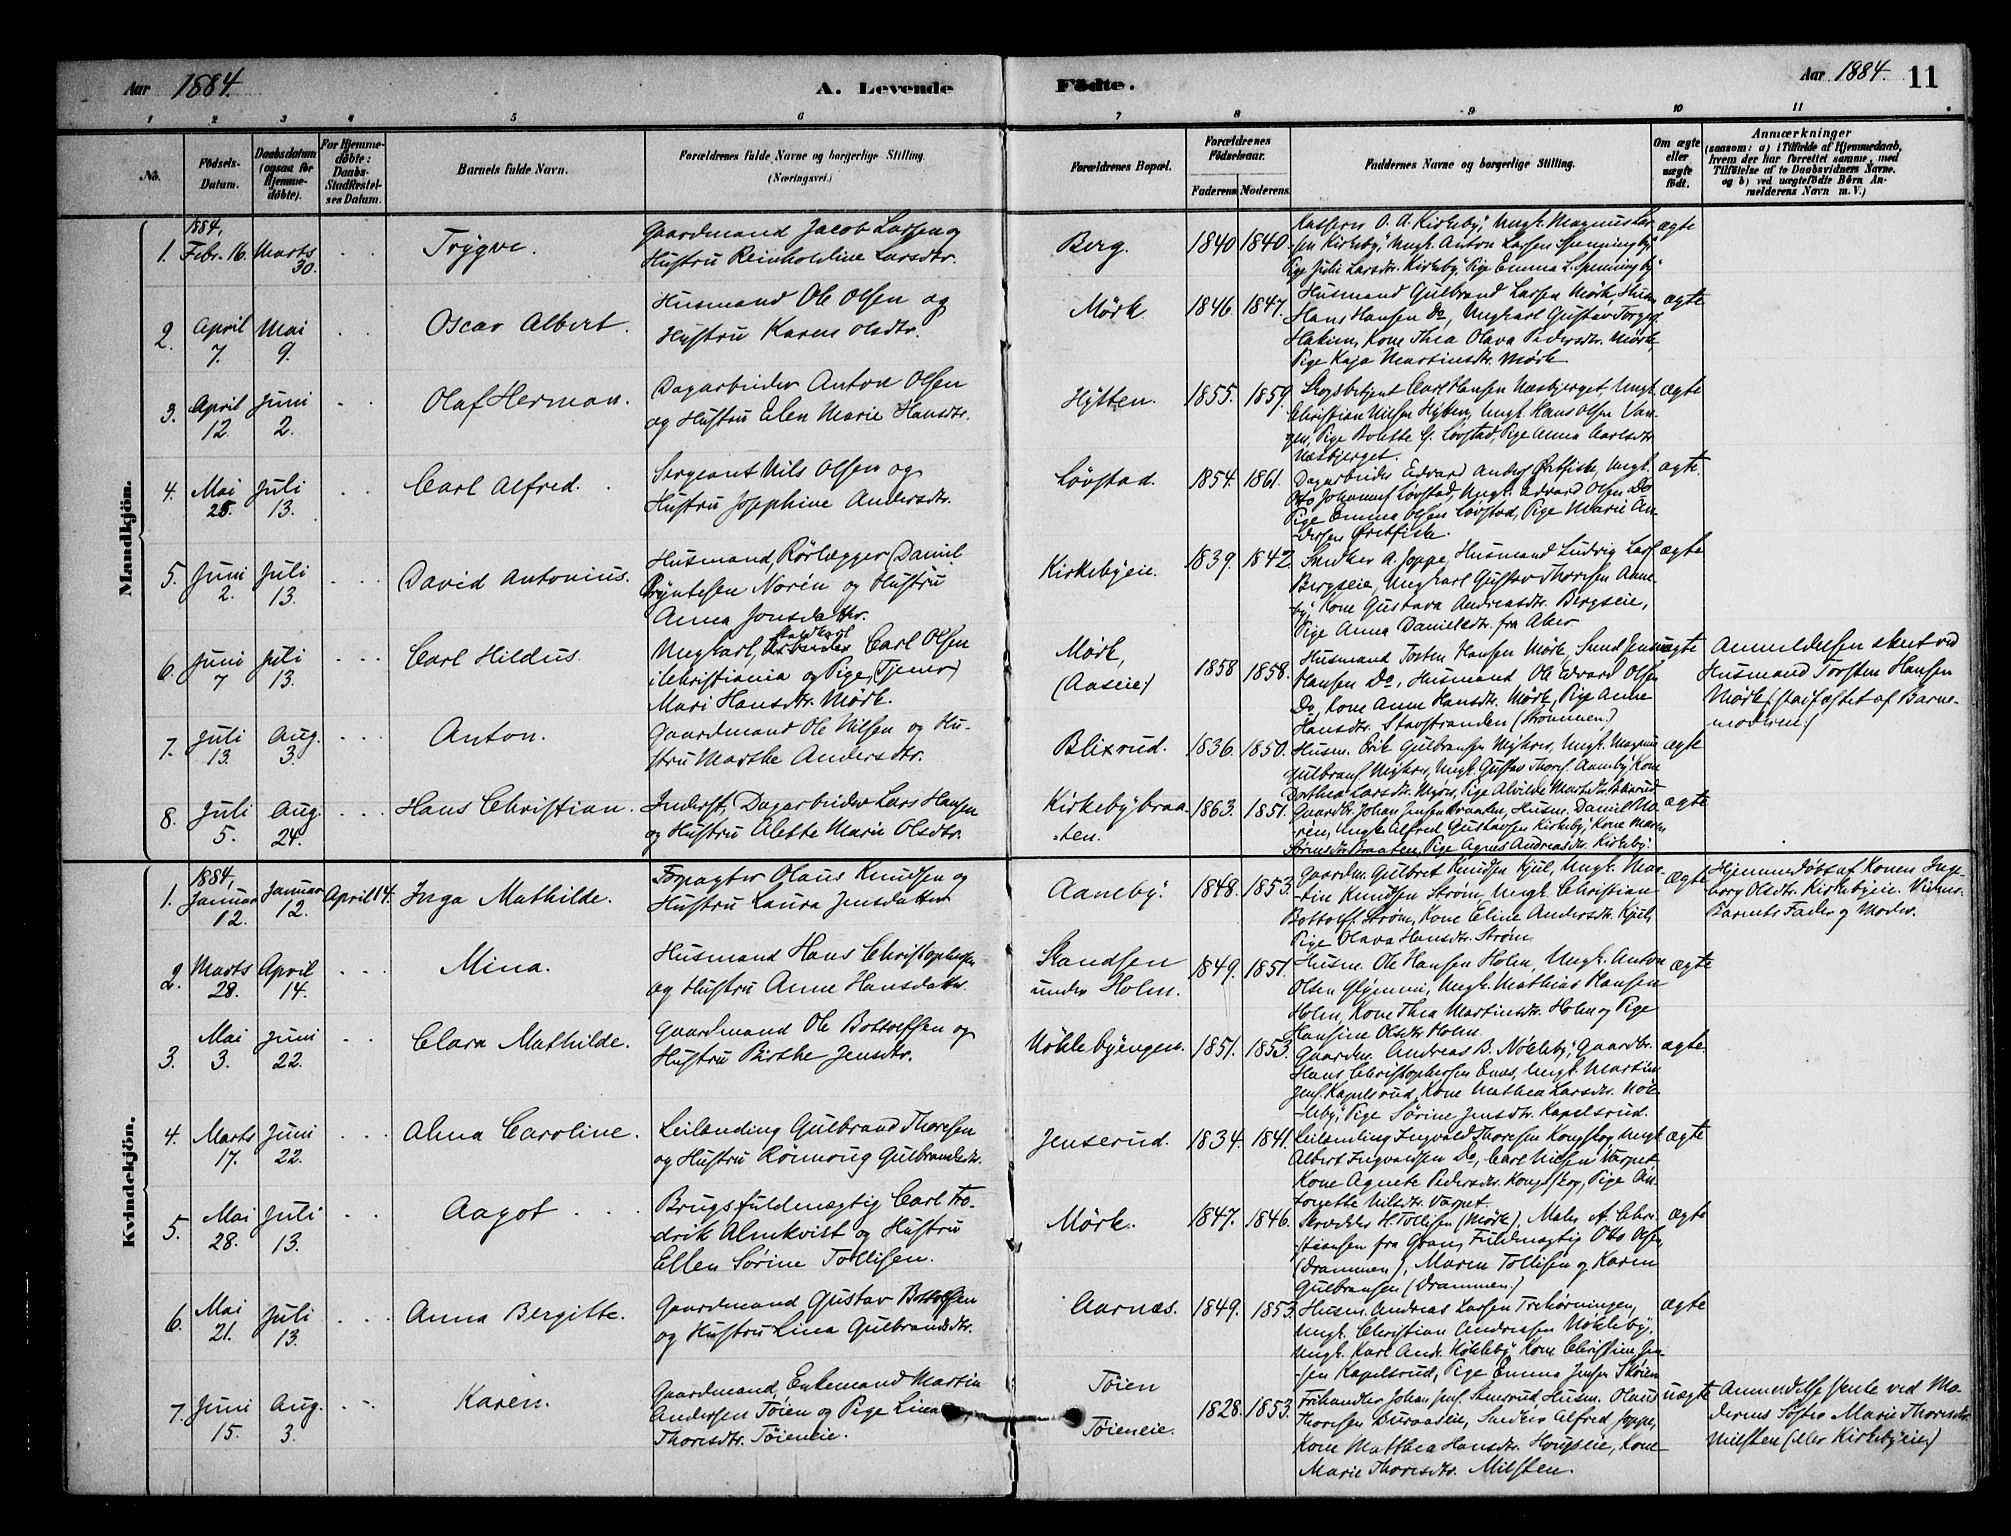 Aar 1884.
A. Levende Fødte.
Aar 1884. 11
1 2 3 4 5 6 7 8 9 10 11
No.
Fødsels-Datum.
Daabsdatum (ogsaa for Hjemmedøbte).
For Hjemmedøbte: Daabs-Stadfæstelses Datum.
Barnets fulde Navn.
Forældrenes fulde Navne og borgerlige Stilling. (Næringsvei.)
Forældrenes Bopæl.
Forældrenes Fødselsaar.
Faderens Moderens
Faddernes Navne og borgerlige Stilling.
Om ægte eller uægte født.
Anmærkninger
(saasom: a) i Tilfælde af Hjemmedaab, hvem der har forrettet samme, med Tilføielse af to Daabsvidners Navne, og b) ved uægtefødte Børn Anmelderens Navn m. V.)
Mandkjön.
1. 1884, Febr. 16. Marts 30. Trygve.
Gaardmand Jacob Larsen og
Hustru Reinholdine Larsdtr.
Berg. 1840 1840.
O. A. Kirkeby, Ungk. Magnus Lar-
sen Kirkeby, Ungk. Anton Larsen Spenningby,
Pige Julie Larsdtr. Kirkeby, Pige Emma L. Spenningby
ægte
2. April 7. Mai 9. Oscar Albert.
Husmand Ole Olsen og
Hustru Karen Olsdtr.
Mörk 1846. 1847.
Husmand Gulbrand Larsen Mörk, Husm.
Hans Hansen Do, Ungkarl Gustav
Kone Thea Olava Pedersdtr. Mörk,
Pige Kaja Martinsdtr. Mörk.
ægte
3. April 12. Juni 2. Olaf Herman.
Dagarbeider Anton Olsen
og Hustru Elen Marie Hansdtr.
Hytten. 1855. 1859.
Skogsbetjent Carl Hansen Næsbjerget, Ungk.
Christian Nilsen Hytten, Ungk. Hans Olsen Van-
gen, Pige Bolette G. Lövstad, Pige Anna Carlsdtr.
Næsbjerget.
ægte
4. Mai 25. Juli 13. Carl Alfred.
Sergeant Nils Olsen og
Hustru Josephine Andersdtr.
Lövstad. 1854. 1861.
Dagarbeider Edvard Anders. Örtfisk, Ungk.
Otto Johannes. Lövstad, Ungk. Edvard Olsen Do
Pige Emma Olsen Lövstad, Pige Marie An-
dersen Örtfisk.
ægte.
5. Juni 2. Juli 13. David Antonius.
Husmand, Rörlægger Daniel
Bryntesen Norén og Hustru
Anna Jonsdatter.
Kirkebyeie. 1839. 1842
A. Joppe, Husmand Ludvig Lars.
Bergseie, Ungkarl Gustav Thoresen Aane-
by, Kone Gustava Andreasdtr. Bergseie,
Pige Anna Danielsdtr. fra Aker
ægte
6. Juni 7 Juli 13. Carl Hildus.
Ungkarl, Staldkarl Carl Olsen
i Christiania og Pige, (Tjener)
Mari Hansdtr. Mörk.
Mörk, (Aaseie.) 1858 1858.
Husmand Torsten Hansen Mörk,
Hansen Do, Husmand Ole Edvard Olsen
Do, Kone Anne Hansdtr. Mörk, Pige Anne
Hansdtr. Stavstranden (Strömmen.)
uægte
Anmeldelsen skeet ved
Husmand Torsten Hansen
Mörk, (stadfæstet af Barne-
moderen.)
7. Juli 13. Aug. 3. Anton.
Gaardmand Ole Nilsen og Hu-
stru Marthe Andersdtr.
Blixrud. 1836. 1850.
Husm. Erik Gulbransen Ungk. Magnus
Gulbrans. Ungk. Gustav Thores. Aaneby, Kone
Dorthea Larsdtr. Pige Alvilde
ægte
8. Juli 5. Aug. 24. Hans Christian.
Inderst, Dagarbeider Lars Hansen
og Hustru Alette Marie Olsdtr.
Kirkebybraa-
-ten. 1863. 1851.
Gaardbr. Johan Jensen Braaten, Husm. Daniel No-
rén, Ungk. Alfred Gustavsen Kirkeby, Kone Maren
Sörensdtr. Braaten, Pige Agnes Andreasdtr. Kirkeby.
ægte
Kvindekjön.
1. 1884, Januar 12. Januar 12. April 14. Inga Mathilde.
Forpagter Olaus Knudsen og
Hustru Laura Jensdatter
Aaneby. 1848. 1853.
Gaardm. Gulbret Knudsen Kjul, Ungk. Mar-
tin Knudsen Ström, Ungk. Christian
Bottolfs. Ström, Kone Eline Andersdtr. Kjul,
Pige Olava Hansdtr. Ström.
ægte
Hjemmedöbt af Konen Inge-
borg Olsdtr. Kirkebyeie. Vidner
Barnets Fader og Moder.
2. Marts 28. April 14. Mina.
Husmand Hans Christophersen
og Hustru Anne Hansdatter.
Skandsen
under Holm. 1849. 1851.
Husm. Ole Hansen Holm, Ungk. Anton
Olsen Ungk. Mathias Hansen
Holm, Kone Thea Martinsdtr. Holm og Pige
Hansine Olsdtr. Holm.
ægte
3. Mai 3. Juni 22. Clara Mathilde.
Gaardmand Ole Bottolfsen og
Hustru Birthe Jensdtr.
Nöklebyengen. 1851. 1853.
Gaardm. Andreas B. Nökleby, Gaardbr.
Hans Christophersen Ungk. Martin
Jens. Kapelsrud, Kone Mathea Larsdtr. Nök-
-leby, Pige Sörine Jensdtr. Kapelsrud.
ægte
4. Marts 17. Juni 22. Alma Caroline.
Leilending Gulbrand Thoresen
og Hustru Rönnoug Gulbrandsdtr.
Jenserud. 1834. 1841.
Leilending Ingvald Thoresen Kongskog, Ungk.
Albert Ingvaldsen Do, Carl Nilsen Varpet
Kone Agnete Pedersdtr. Kongskog, Pige An-
tonette Nilsdtr. Varpet.
ægte
5. Mai 28. Juli 13. Aagot.
Brugsfuldmægtig Carl Fre-
drik Almkvist og Hustru
Ellen Sörine Tollisen.
Mörk. 1847. 1846.
Skrædder H. Tollisen (Mörk), Maler A. Chri-
stiansen fra Gran, Fuldmægtig Otto Olsen,
(Drammen), Maren Tollisen og Karen
Gulbransen (Drammen.)
ægte
6. Mai 21. Juli 13. Anna Bergitte.
Gaardmand Gustav Bottolfsen
og Hustru Lina Gulbrandsdtr.
Aarnæs. 1849. 1853.
Husm. Andreas Larsen Trehörningen,
Ungk. Christian Andreasen Nökleby,
Ungk. Karl Andr. Nökleby Kone Christine Jen-
sen Kapelsrud, Pige Emma Jensen Sköien
ægte
7. Juni 15. Aug. 3. Karen.
Gaardmand, Enkemand Martin
Andersen Töien og Pige Lina
Thoresdtr. Töieneie.
Töien
Töieneie. 1828. 1853.
Frihandler Johan Jens. Husm. Olaus
Thoresen Alfred Joppe,
Kone Matthea Hansdtr. Kone
Marie Thoresdtr. Milsten.
uægte
Anmeldelse skete ved Mo-
derens Söster Marie Thoresdtr.
Milsten (eller Kirkebyeie)